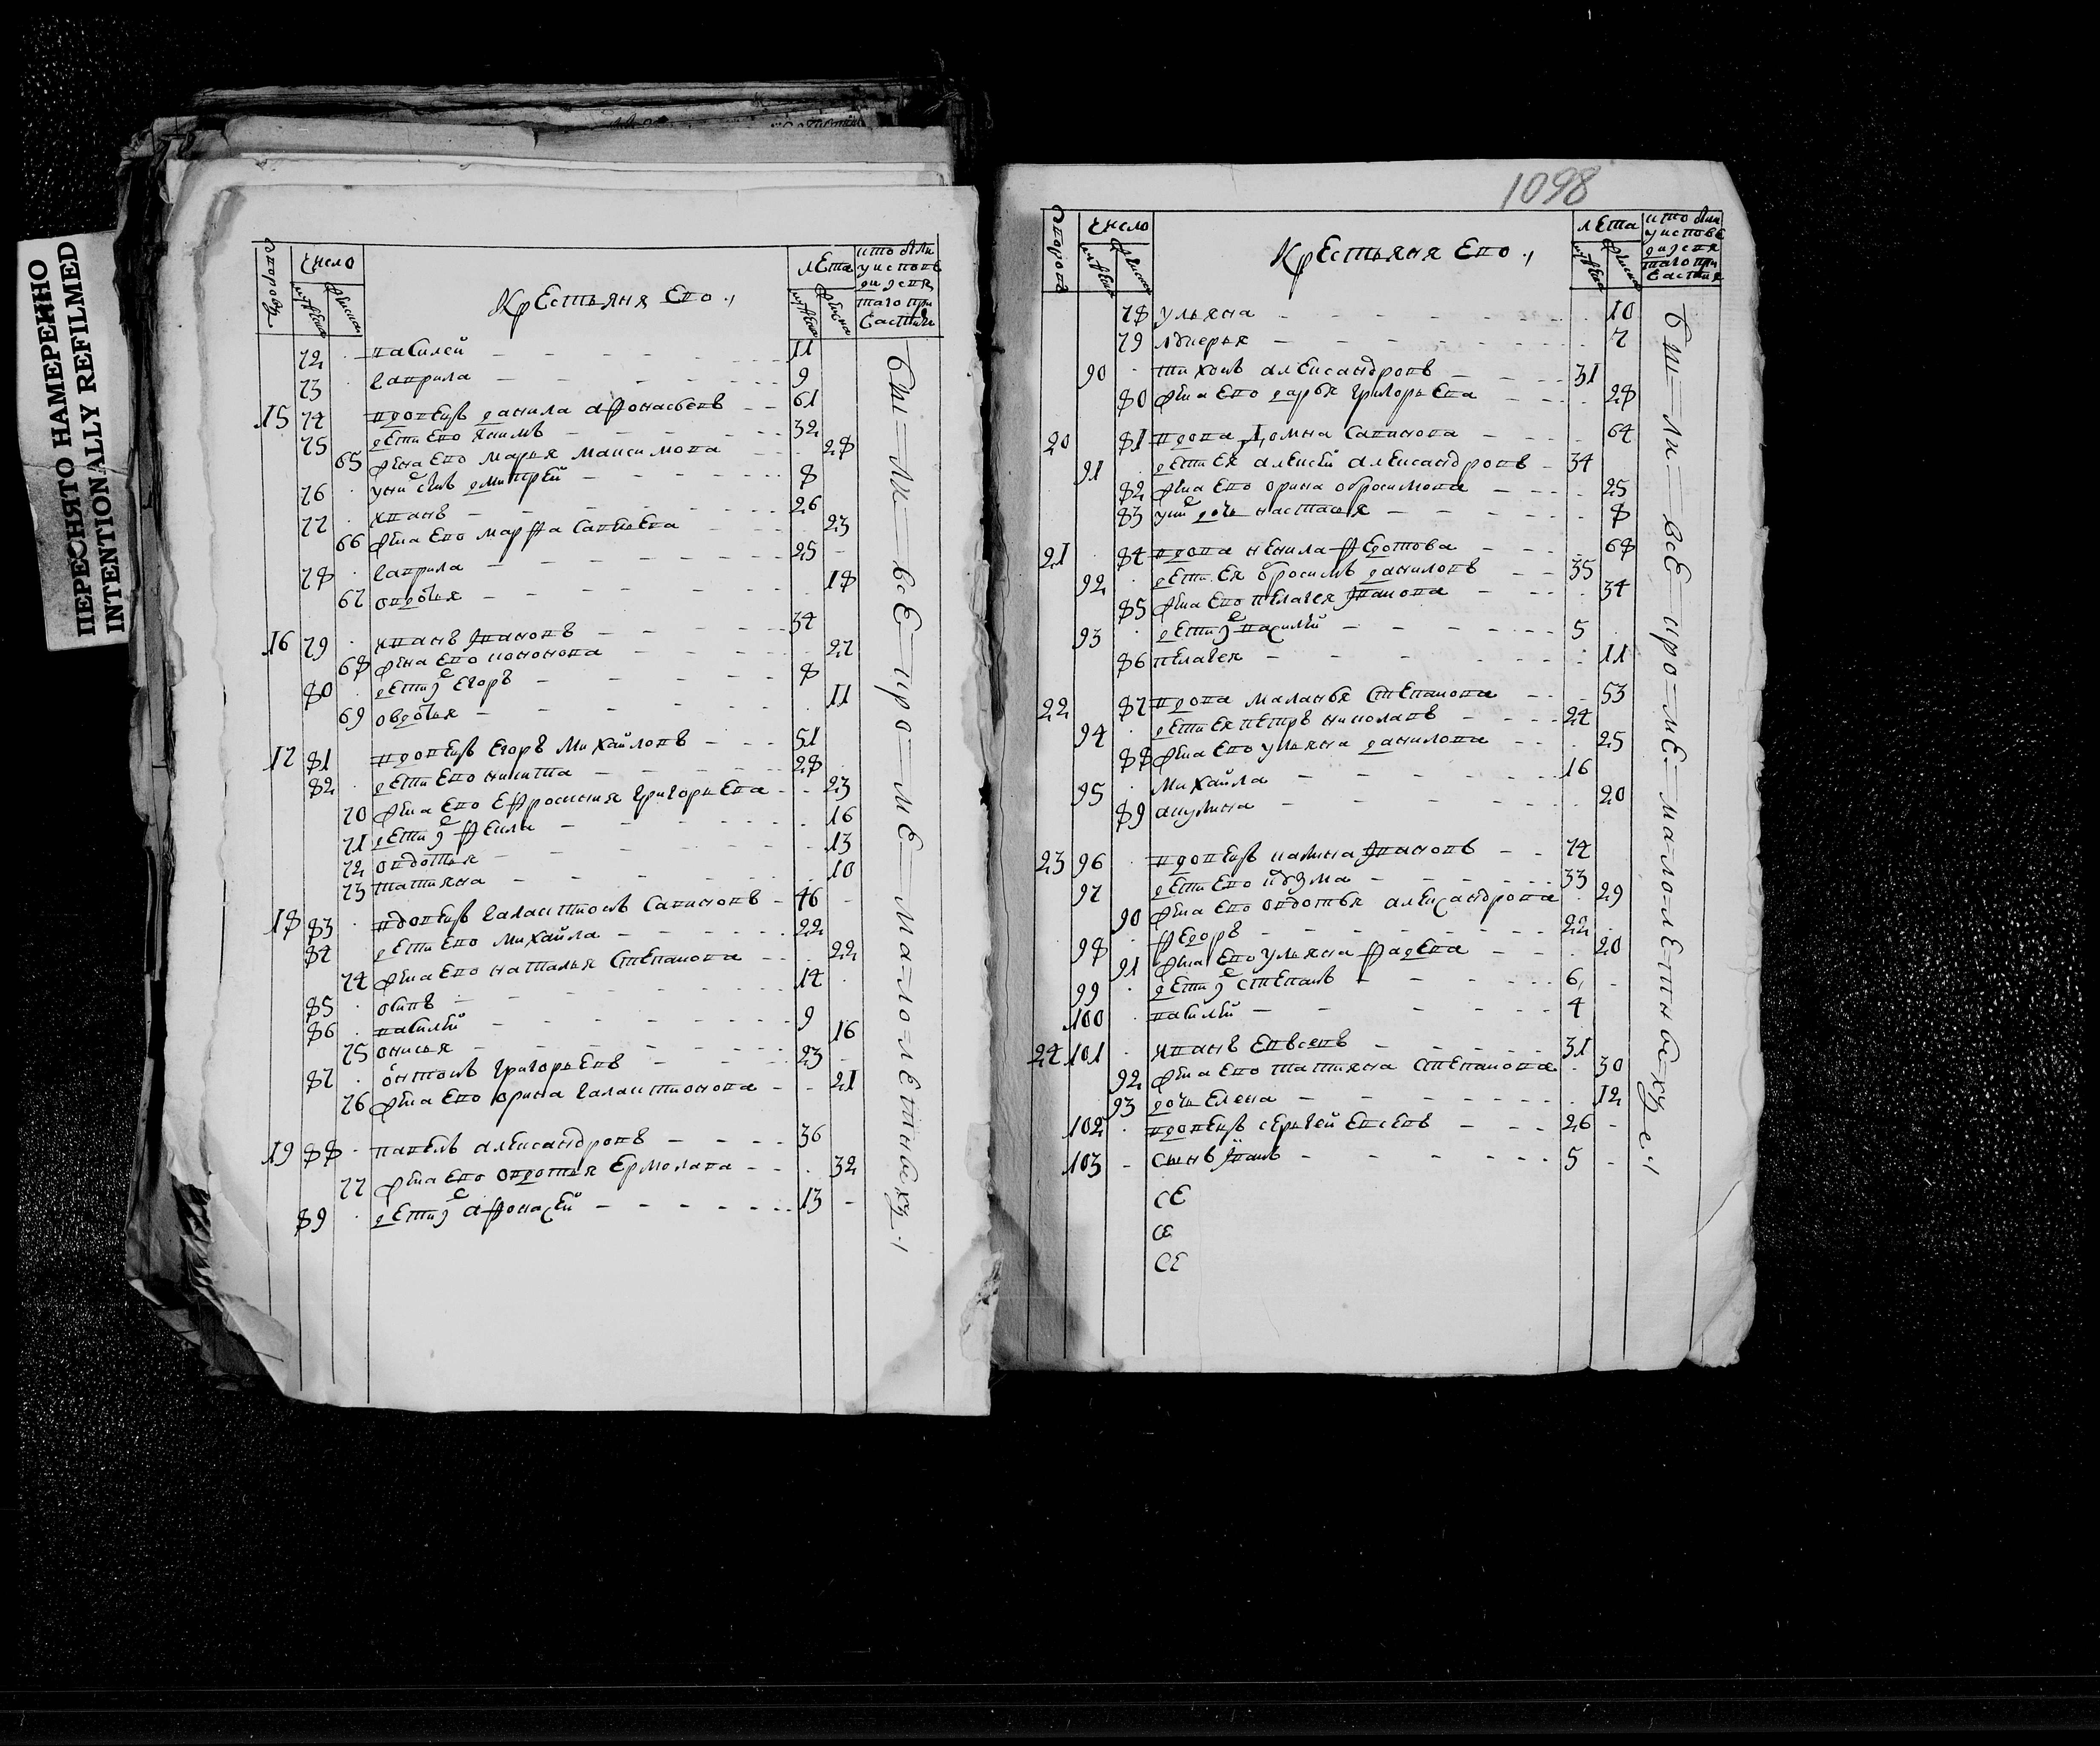 ПЕРЕСНЯТО НАМЕРЕННО
INTENTIONALLY REFILMED
число
Крестьяня ево
лета
72 василей 11
73 гаврила 9
15 74 вдовецъ данила афонасьевъ 61
75 дети ево якимъ 32
65 жена ево марья максимова 28
76 у них сынъ дмитрей 8
77 иванъ 26
66 жена ево марфа савельева 23
78 гаврила 25
67 овдотья 18
16 79 иванъ ивановъ 34
68 жена ево 27
80 дети их егоръ 8
69 овдотья 11
17 81 вдовецъ егоръ михайловъ 51
82 дети ево никита 28
70 жена ево ефросиния григорьева 23
71 дети их фекла 16
72 овдотья 13
73 татияна 10
18 83 вдовецъ галактионъ савиновъ 46
84 дети ево михайла 22
74 жена ево наталья степанова 22
85 осипъ 14
86 василей 9
75 онисья 16
87 онтонъ григорьевъ 23
76 жена ево орина галактионова 21
19 88 павелъ александровъ 36
77 жена ево овдотья ермолаева 32
89 дети их афонасей 13
бы-ли-все-кро-ме-ма-ло-летныхъ
1098
число
Крестьяня ево
лета
78 ульяна 10
79 лукерья 7
90 тихонъ александровъ 31
80 жена ево дарья григорьева 28
20 81 вдова домна савинова 64
91 дети ея алексей александровъ 34
82 жена ево орина обросимова 25
83 у них дочь настасья 8
21 84 вдова ненила федотова 68
92 дети ея обросимъ даниловъ 35
85 жена ево пелагея иванова 34
93 дети их василей 5
86 пелагея 11
22 87 вдова маланья степанова 53
94 дети ея петръ николаевъ 24
88 жена ево ульяна данилова 25
95 михайла 16
89 акулина 20
23 96 вдовецъ калина ивановъ 74
97 дети ево козма 33
90 жена ево овдотья александрова 29
98 федоръ 22
91 жена ево ульяна фадеева 20
99 дети их степанъ 6
100 василей 4
24 101 иванъ евсеевъ 31
92 жена ево татияна степанова 30
93 дочь елена 12
102 вдовецъ сергей евсеевъ 26
103 сынъ иванъ 5
СЕ
СЕ
СЕ
бы-ли-все-кро-ме-ма-ло-лет-ны-хъ